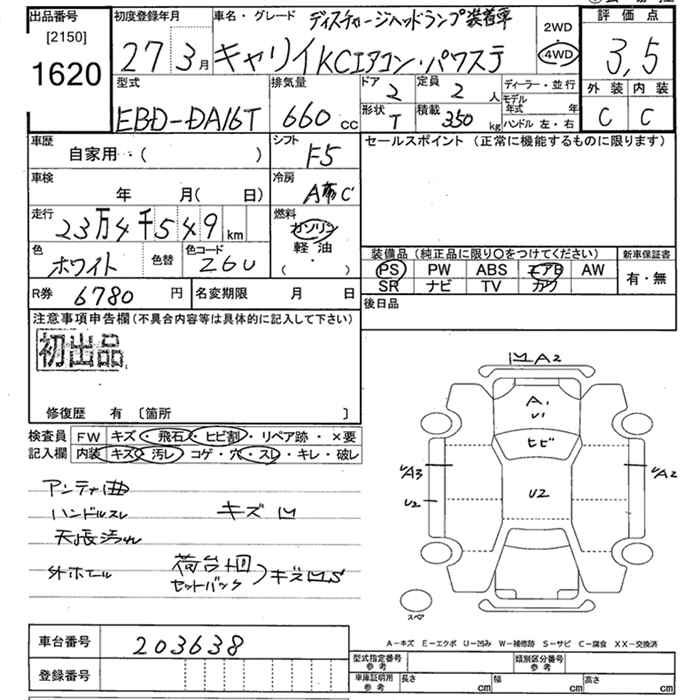 出品番号
[2150]
1620
初度登録年月
27 3月
車名・グレード
ディスチャージヘッドランプ装着車
キャリイKCエアコン・パワステ
2WD
4WD
評価点
3,5
外装 内装
C C
型式
EBD-DA16T
排気量
660 cc
ドア
2
定員
2 人
形状
T
積載
350 kg
ディーラー・並行
モデル年式 年
ハンドル 左・右
車歴
自家用・( )
シフト
F5
車検
年 月( 日)
冷房
AC
走行
23万4千549 km
燃料
ガソリン
軽油
( ・ )
色
ホワイト
色替
色コード
Z6U
R券 6780 円
名変期限 月 日
セールスポイント (正常に機能するものに限ります)
装備品 (純正品に限り○をつけてください)
PS PW ABS エアB AW
SR ナビ TV カワ
新車保証書
有・無
後日品
注意事項申告欄(不具合内容等は具体的に記入して下さい)
初出品
修復歴 有 [箇所 ]
検査員 FW キズ・飛石・ヒビ割・リペア跡・×要
記入欄 内装 キズ・汚レ・コゲ・穴・スレ・キレ・破レ
アンテナ曲
ハンドルスレ
キズ凹
天張汚れ
外ホール
荷台凹
セットバック
キズ凹S
凹A2
A1
U1
ヒビ
U2
A3
U2
A2
スペア
A-キズ E-エクボ U-凹み W-補修跡 S-サビ C-腐食 XX-交換済
車台番号 203638
登録番号
型式指定番号
参考
類別区分番号
参考
車庫証明用
参考
長さ cm
幅 cm
高さ cm